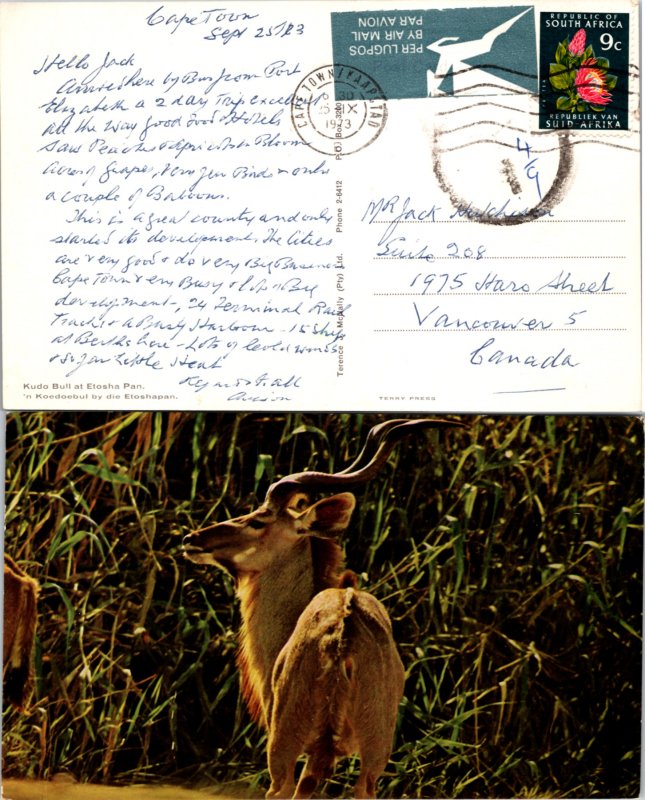 Cape Town
Sept 25/73
Hello Jack
Arrived here by Bus from Port
Elizabeth a 2 day Trip excellent
all the way good food & Hotels
Saw Peaches & Apricots in Bloom
Acres of grapes, Very few Birds & only
a couple of Baboons.
This is a great country and only
started its development. The cities
are very good & do very Big Business
Cape Town very Busy & lots of Big
development, 24 Terminal Rail
Tracks & a Busy Harbour - 15 ships
at Berths here - Lots of cold winds
& so far little Heat
Regards to all
Kudo Bull at Etosha Pan.
'n Koedoebul by die Etoshapan.
Terence J. McNally (Pty) Ltd. Phone 2-6412 P.O. Box 3200
PER LUGPOS
BY AIR MAIL
PAR AVION
CAPE TOWN / KAAPSTAD
IX
1973
REPUBLIC OF
SOUTH AFRICA
9c
REPUBLIEK VAN
SUID-AFRIKA
4/9
Mr Jack Hutchison
Suite 208
1975 Haro Street
Vancouver 5
Canada
TERRY PRESS